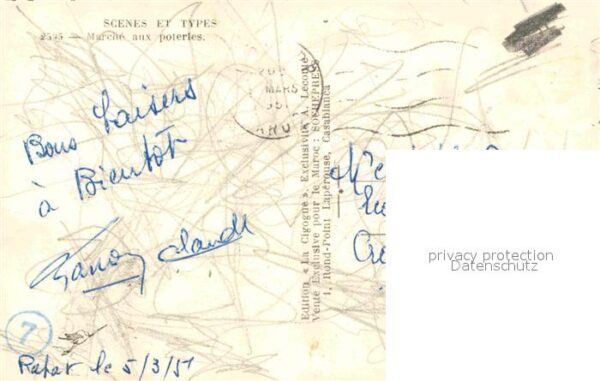 SCENES ET TYPES
2595 — Marché aux poteries.
MARS
Bons baisers
à Bientôt
Claude
7
Rabat le 5/3/51
Edition « La Cigogne ». Exclusivité A. Lecomte
Vente Exclusive pour le Maroc : SOCHEPRESS
1, Rond-Point Lapérouse, Casablanca
privacy protection
Datenschutz